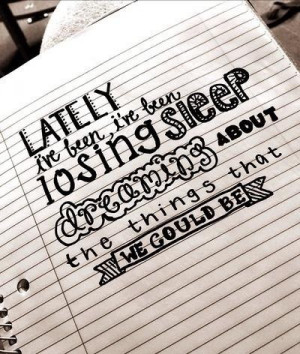 LATELY
i've been, i've been
losing sleep
dreaming ABOUT
the things that
WE COULD BE